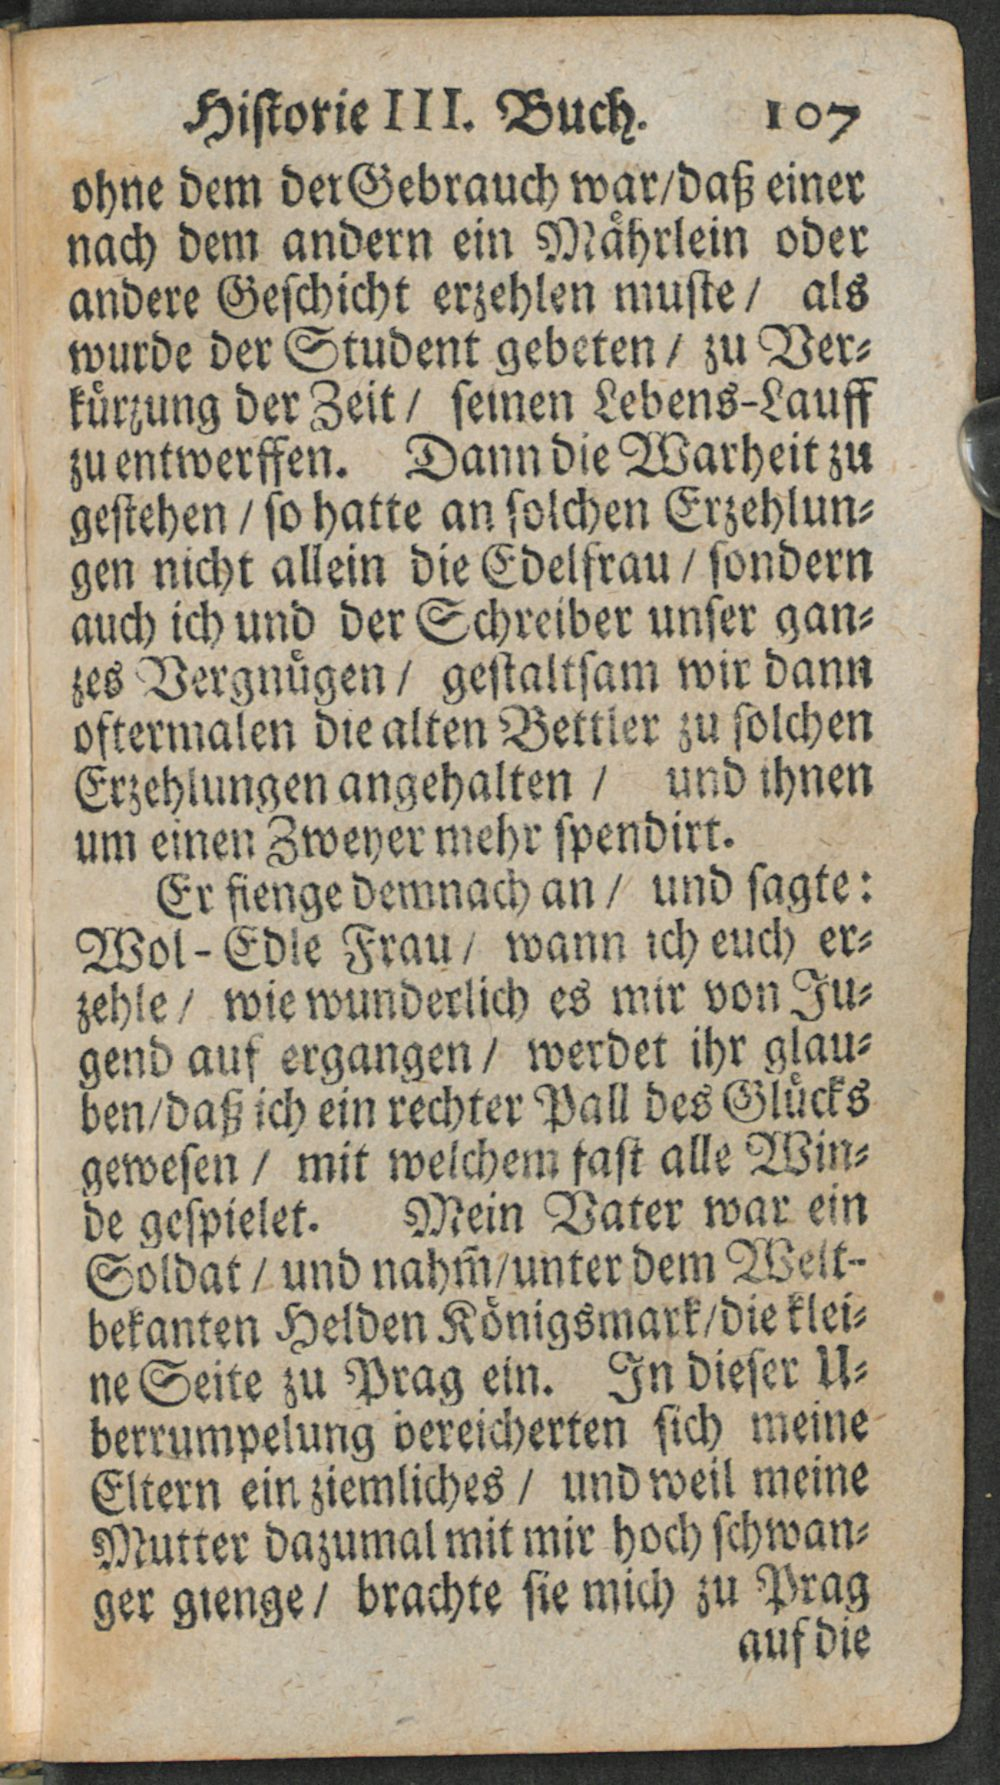 Hiſtorie III. Buch. 107
ohne dem der Gebrauch war/daß einer
nach dem andern ein Maͤhrlein oder
andere Geſchicht erzehlen muſte / als
wurde der Student gebeten / zu Ver⸗
kuͤrzung der Zeit / ſeinen Lebens-Lauff
zu entwerffen. Dann die Warheit zu
geſtehen / ſo hatte an ſolchen Erzehlun⸗
gen nicht allein die Edelfrau / ſondern
auch ich und der Schreiber unſer gan⸗
zes Vergnuͤgen / geſtaltſam wir dann
oftermalen die alten Bettler zu ſolchen
Erzehlungen angehalten / und ihnen
um einen Zweyer mehr ſpendirt.
Er fienge demnach an / und ſagte:
Wol-Edle Frau / wann ich euch er⸗
zehle / wie wunderlich es mir von Ju⸗
gend auf ergangen / werdet ihr glau⸗
ben/daß ich ein rechter Pall des Gluͤcks
geweſen / mit welchem faſt alle Win⸗
de geſpielet. Mein Vater war ein
Soldat / und nahm̃/unter dem Welt-
bekanten Helden Koͤnigsmark/die klei⸗
ne Seite zu Prag ein. In dieſer U⸗
berrumpelung bereicherten ſich meine
Eltern ein ziemliches / und weil meine
Mutter dazumal mit mir hoch ſchwan⸗
ger gienge / brachte ſie mich zu Prag
auf die